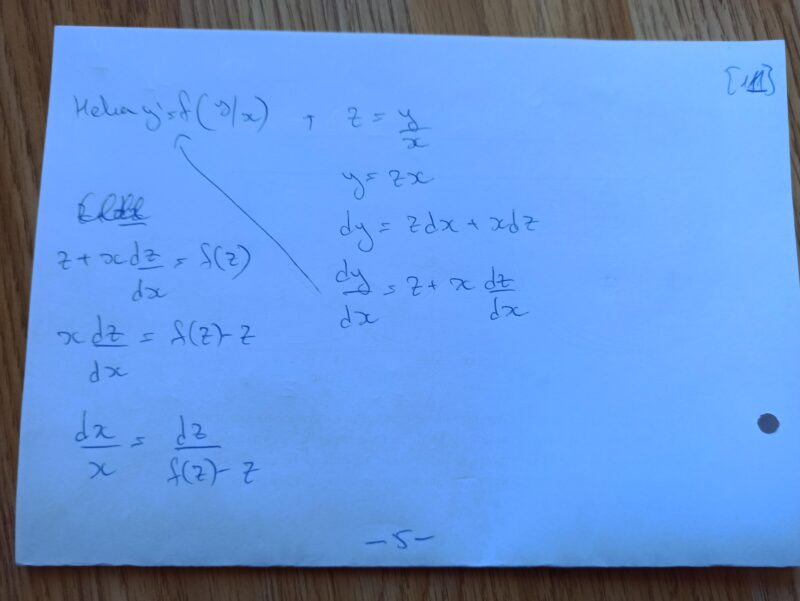 [11]
y' = f(y/x) , z = y/x
y = zx
dy = zdx + xdz
dy/dx = z + x dz/dx
z + x dz/dx = f(z)
x dz/dx = f(z) - z
dx/x = dz/(f(z) - z)
- 5 -